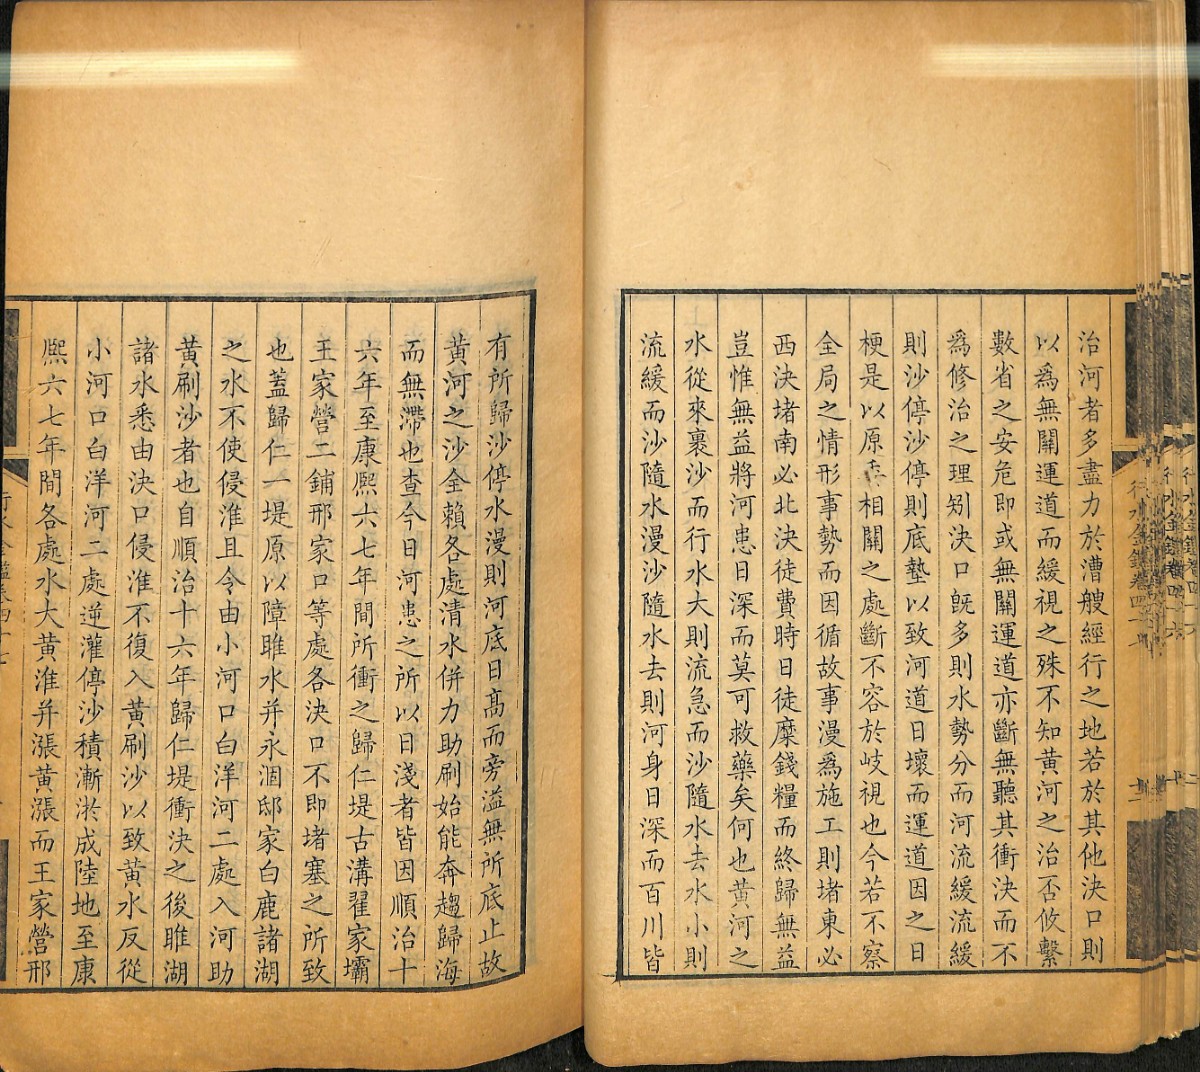 治河者多盡力於漕艘經行之地若於其他決口則
以為無關運道而緩視之殊不知黃河之治否攸繫
數省之安危即或無關運道亦斷無聽其衝決而不
為修治之理矧決口旣多則水勢分而河流緩流緩
則沙停沙停則底墊以致河道日壞而運道因之日
梗是以原相關之處斷不容於岐視也今若不察
全局之情形事勢而因循故事漫為施工則堵東必
西決堵南必北決徒費時日徒糜錢糧而終歸無益
豈惟無益將河患日深而莫可救藥矣何也黃河之
水從來裹沙而行水大則流急而沙隨水去水小則
流緩而沙隨水漫沙隨水去則河身日深而百川皆
有所歸沙停水漫則河底日高而旁溢無所底止故
黃河之沙全賴各處清水併力助刷始能奔趨歸海
而無滯也查今日河患之所以日淺者皆因順治十
六年至康熙六七年間所衝之歸仁堤古溝翟家壩
王家營二鋪邢家口等處各決口不即堵塞之所致
也蓋歸仁一堤原以障睢水并永涸邸家白鹿諸湖
之水不使侵淮且令由小河口白洋河二處入河助
黃刷沙者也自順治十六年歸仁堤衝決之後睢湖
諸水悉由決口侵淮不復入黃刷沙以致黃水反從
小河口白洋河二處逆灌停沙積漸淤成陸地至康
熙六七年間各處水大黃淮并漲黃漲而王家營邢